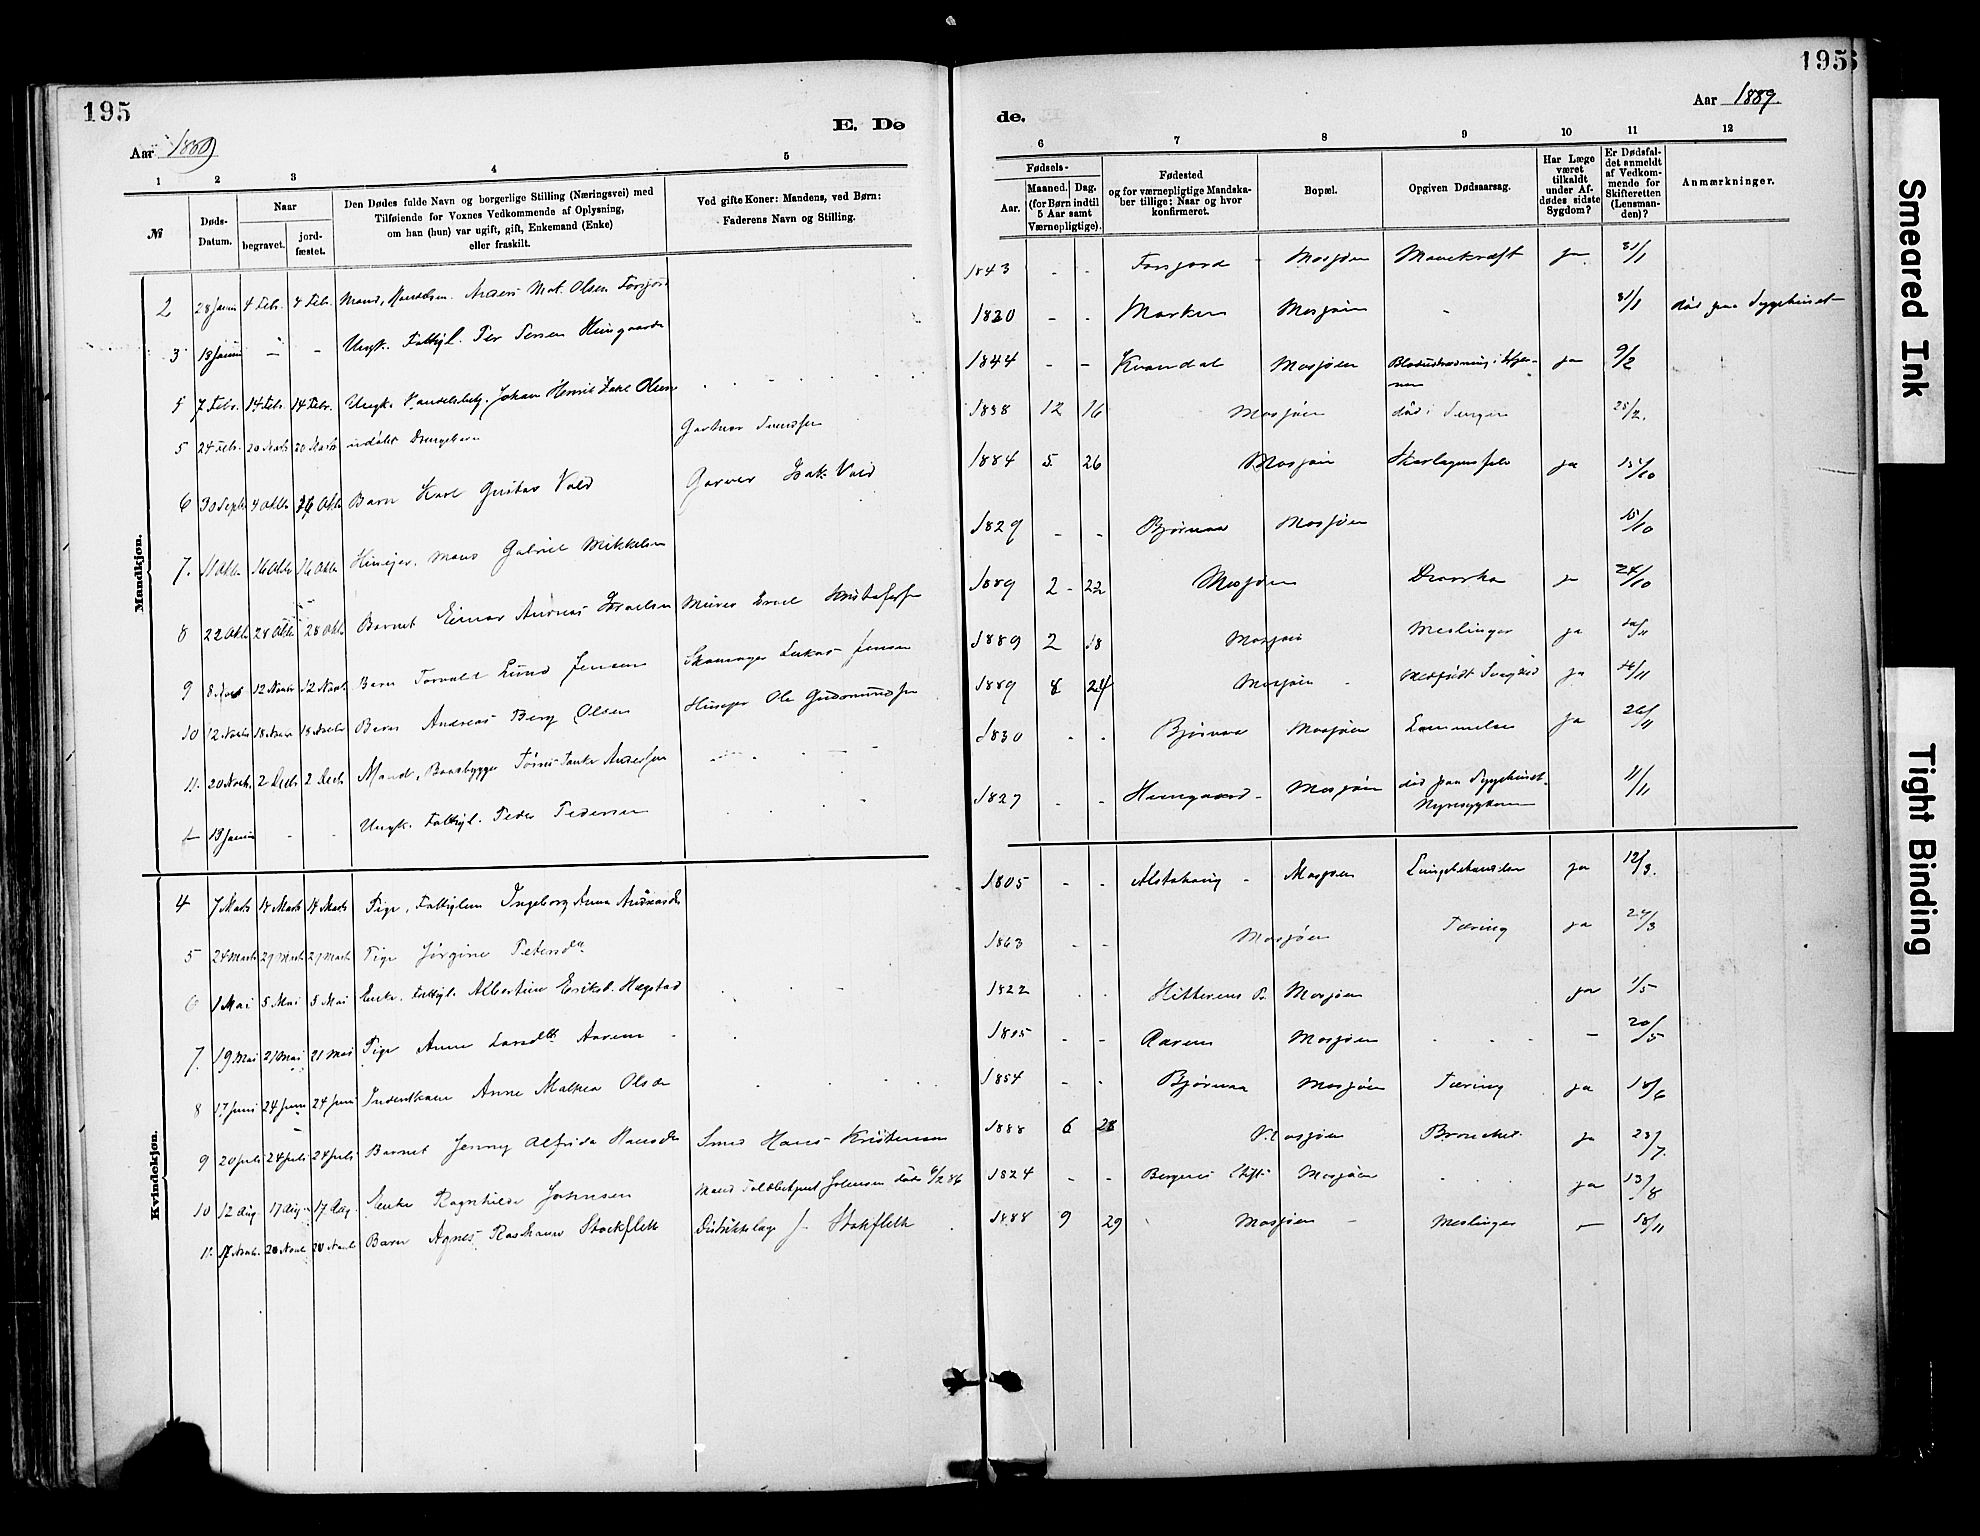 195
195
Aar 1889
E. Dø
de.
Aar 1889.
1 2 3 4 5
6 7 8 9 10 11 12
№
Døds-
Datum.
Naar
begravet.
jord-
fæstet.
Den Dødes fulde Navn og borgerlige Stilling (Næringsvei) med
Tilføiende for Voxnes Vedkommende af Oplysning,
om han (hun) var ugift, gift, Enkemand (Enke)
eller fraskilt.
Ved gifte Koner: Mandens, ved Børn:
Faderens Navn og Stilling.
Fødsels-
Aar.
Maaned. Dag.
(for Børn indtil
5 Aar samt
Værnepligtige).
Fødested
og for værnepligtige Mandska-
ber tillige: Naar og hvor
konfirmeret.
Bopæl.
Opgiven Dødsaarsag.
Har Læge
været
tilkaldt
under Af-
dødes sidste
Sygdom?
Er Dødsfal-
det anmeldt
af Vedkom-
mende for
Skifteretten
(Lensman-
den)?
Anmærkninger.
Mandkjøn.
2 28 Januar 4 Febr. 4 Febr. Mand, Anders Mat. Olsen Forsjord 1843 - - Forsjord Mosjøen Mavekræft ja 31/1
3 13 Januar - - Ungk. Fattigl. Per Persen 1820 - - Marken Mosjøen - 31/1 død paa Sygehuset
7 Febr. 14 Febr. 14 Febr. Ungk. Johan Henrik Olsen 1844 - - Kvandal Mosjøen ja 9/2
5 24 Febr. 20 Marts 20 Marts udøbt Drengebarn Svendsen 1888 12 16 Mosjøen død i Sengen 28/2.
6 30 Septb 4 Oktb Oktb Barn Karl Gustav Vold Garver Isak Vold 1884 5 26 Mosjøen ja 15/10
7. 11 Oktb 16 Oktb 16 Oktb Huseier, Gabriel Mikkelsen 1829 - - Bjørnaa Mosjøen 15/10
8 22 Oktb 28 Oktb 28 Oktb Barnet Einar Andreas Israelsen Murer Israel Kristofersen 1889 2 - 22 Mosjøen ja 24/10
9 8 Novb 12 Novb 12 Novb Barn Torvald Lund Jensen Skomager Lukas Jensen 1889 2 18 Mosjøen Meslinger ja
10 12 Novb 18 Novb 18 Novb Barn Andreas Berg Olsen Huseier Ole Gudmundsen 1889 8 24 Mosjøen - Medfødt ja 14/11
11. 20 Novb. 2 Decb 2 Decb Mand, Baadbygger Andersen 1830 - - Bjørnaa Mosjøen Lammelse ja 26/11
13 Januar - - Ungk. Fattigl. Peder Pedersen 1827 - - Mosjøen død paa Sygehuset. Nyresygdom 11/11
Kvindekjøn.
4 7 Marts 14 Marts 14 Marts Pige, Fattiglem Ingeborg Anna Andreasdr 1805 - - Alstahaug - Mosjøen ja 12/3.
5 24 Marts 29 Marts 29 Marts Pige Jørgine Petersdtr 1863 - - Mosjøen Tæring ja 27/3
6 1 Mai 5 Mai 5 Mai Enke, Fattigl. Albertine Eriksd. Hagstad 1822 Hitterens Pr. Mosjøen ja 1/5
7. 19 Mai 21 Mai 21 Mai Pige Anne Larsdtr Aarem 1805 - - Aarem Mosjøen - 20/5
8 17 Juni 24 Juni 24 Juni Anne Malvea Olsdr 1854 - - Bjørnaa Mosjøen Tæring ja 18/6
9 20 Juli 24 Juli 24 Juli Barnet Jenny Alfrida Hansdr Smed Hans Kristensen 1888 6 28 Mosjøen Bronchit. ja 23/7.
10 12 Aug. 17 Aug. 17 Aug. Enke Ragnhilde Johnsen Mand Toldbetjent Johnsen døde 6/2 86 1824 - - Bergens Stift Mosjøen ja 13/8
11. 17 Novb. 20 Novb 20 Novb Barn Agnes Stockfleth Distriktslæge J. Stokfleth 1888 9 29 Mosjøen - Meslinger - 18/11
Smeared Ink
Tight Binding